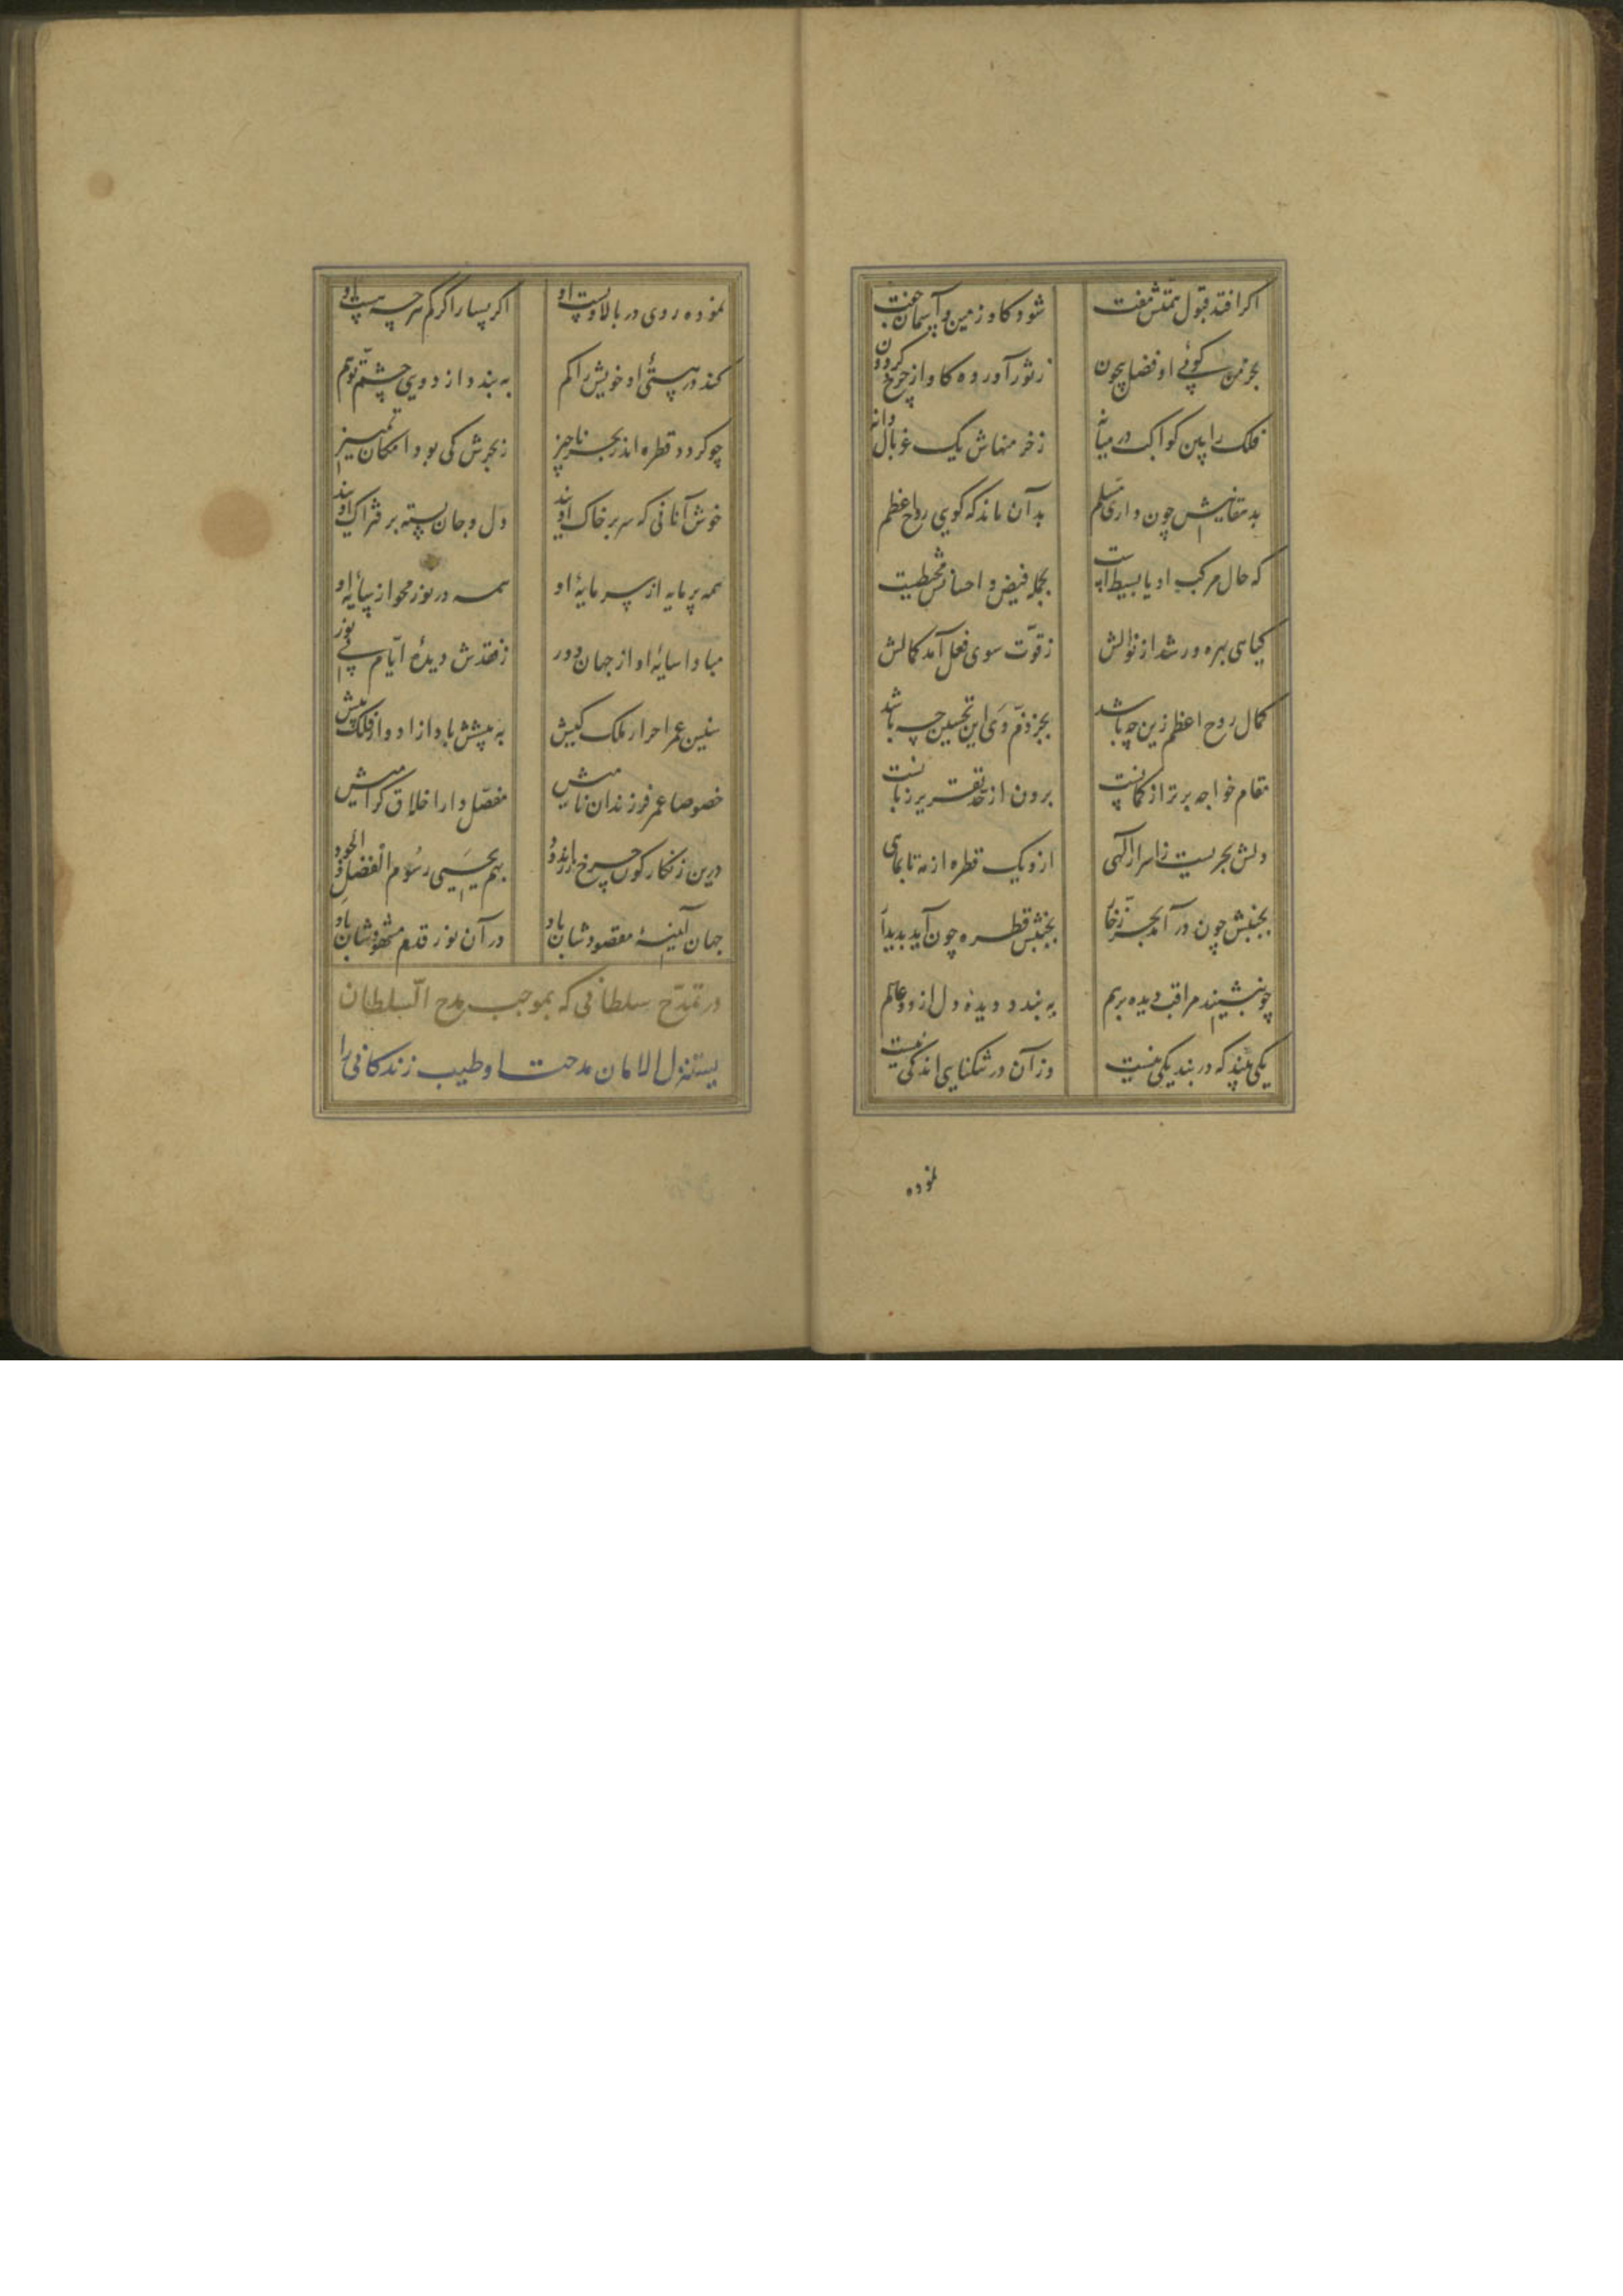 اکر افتد قبول همتش مفت شود کاو زمین و آسمان جفت
بخرمن کوئی او فضل بیچون ز ثور آورده کاو از چرخ کردون
فلک را بین کواکب در میانه ز خرمنهاش یک غربال دانه
بد مقانیش چون داری مسلم بدان ماند که کویی روح اعظم
که حال مرکب او یا بسیط است بجمله فیض و احسانش محیطست
کیاهی بهره ور شد از نوالش ز قوّت سوی فعل آمد کمالش
کمال روح اعظم زین چه باشد بجز ذمّ وی این تحسین چه باشد
مقام خواجه برتر از کمانست برون از حد تقریر زبانست
دلش بحریست ز اسرار آلهی ازو یک قطره از مه تا بماهی
بجنبش چون در آمد بحر زخّار بجنبش قطره چون آید پدیدار
چو بنشیند مراقب دیده بر هم به بندد دیده دل از دو عالم
یکی بیند که در بند یکی نیست وز آن در تنکنای اندکی نیست
نموده
نموده روی در بالا و پست او اکر بسیار اکر کم هرچه هست او
کند در هستیٔ او خویش را کم به بندد از دویی چشم توهّم
چو کردد قطره اندر بحر ناچیز ز بحرش کی بود امکان تمییز
خوش آنانی که سر بر خاک اویند دل و جان بسته بر فتراک اویند
همه پر مایه از سرمایهٔ او همه در نور محو از سایهٔ او
مبادا سایهٔ او از جهان دور ز فقدش دیدهٔ ایّام بی نور
سنین عمر احرار ملک کیش به پیشش باد از ادوار فلک بیش
خصوصا عمر فرزندان نامیش مفصّل دار اخلاق کرامیش
درین زنکار کون چرخ زر اندود بهم یحیی رسوم الفضل و الجود
جهان آیینهٔ مقصودشان باد در آن نور قدم مشهودشان باد
در تمدّح سلطانی که بموجب مدح السلطان
یستنزل الامان مدحت او طیب زندکانی را